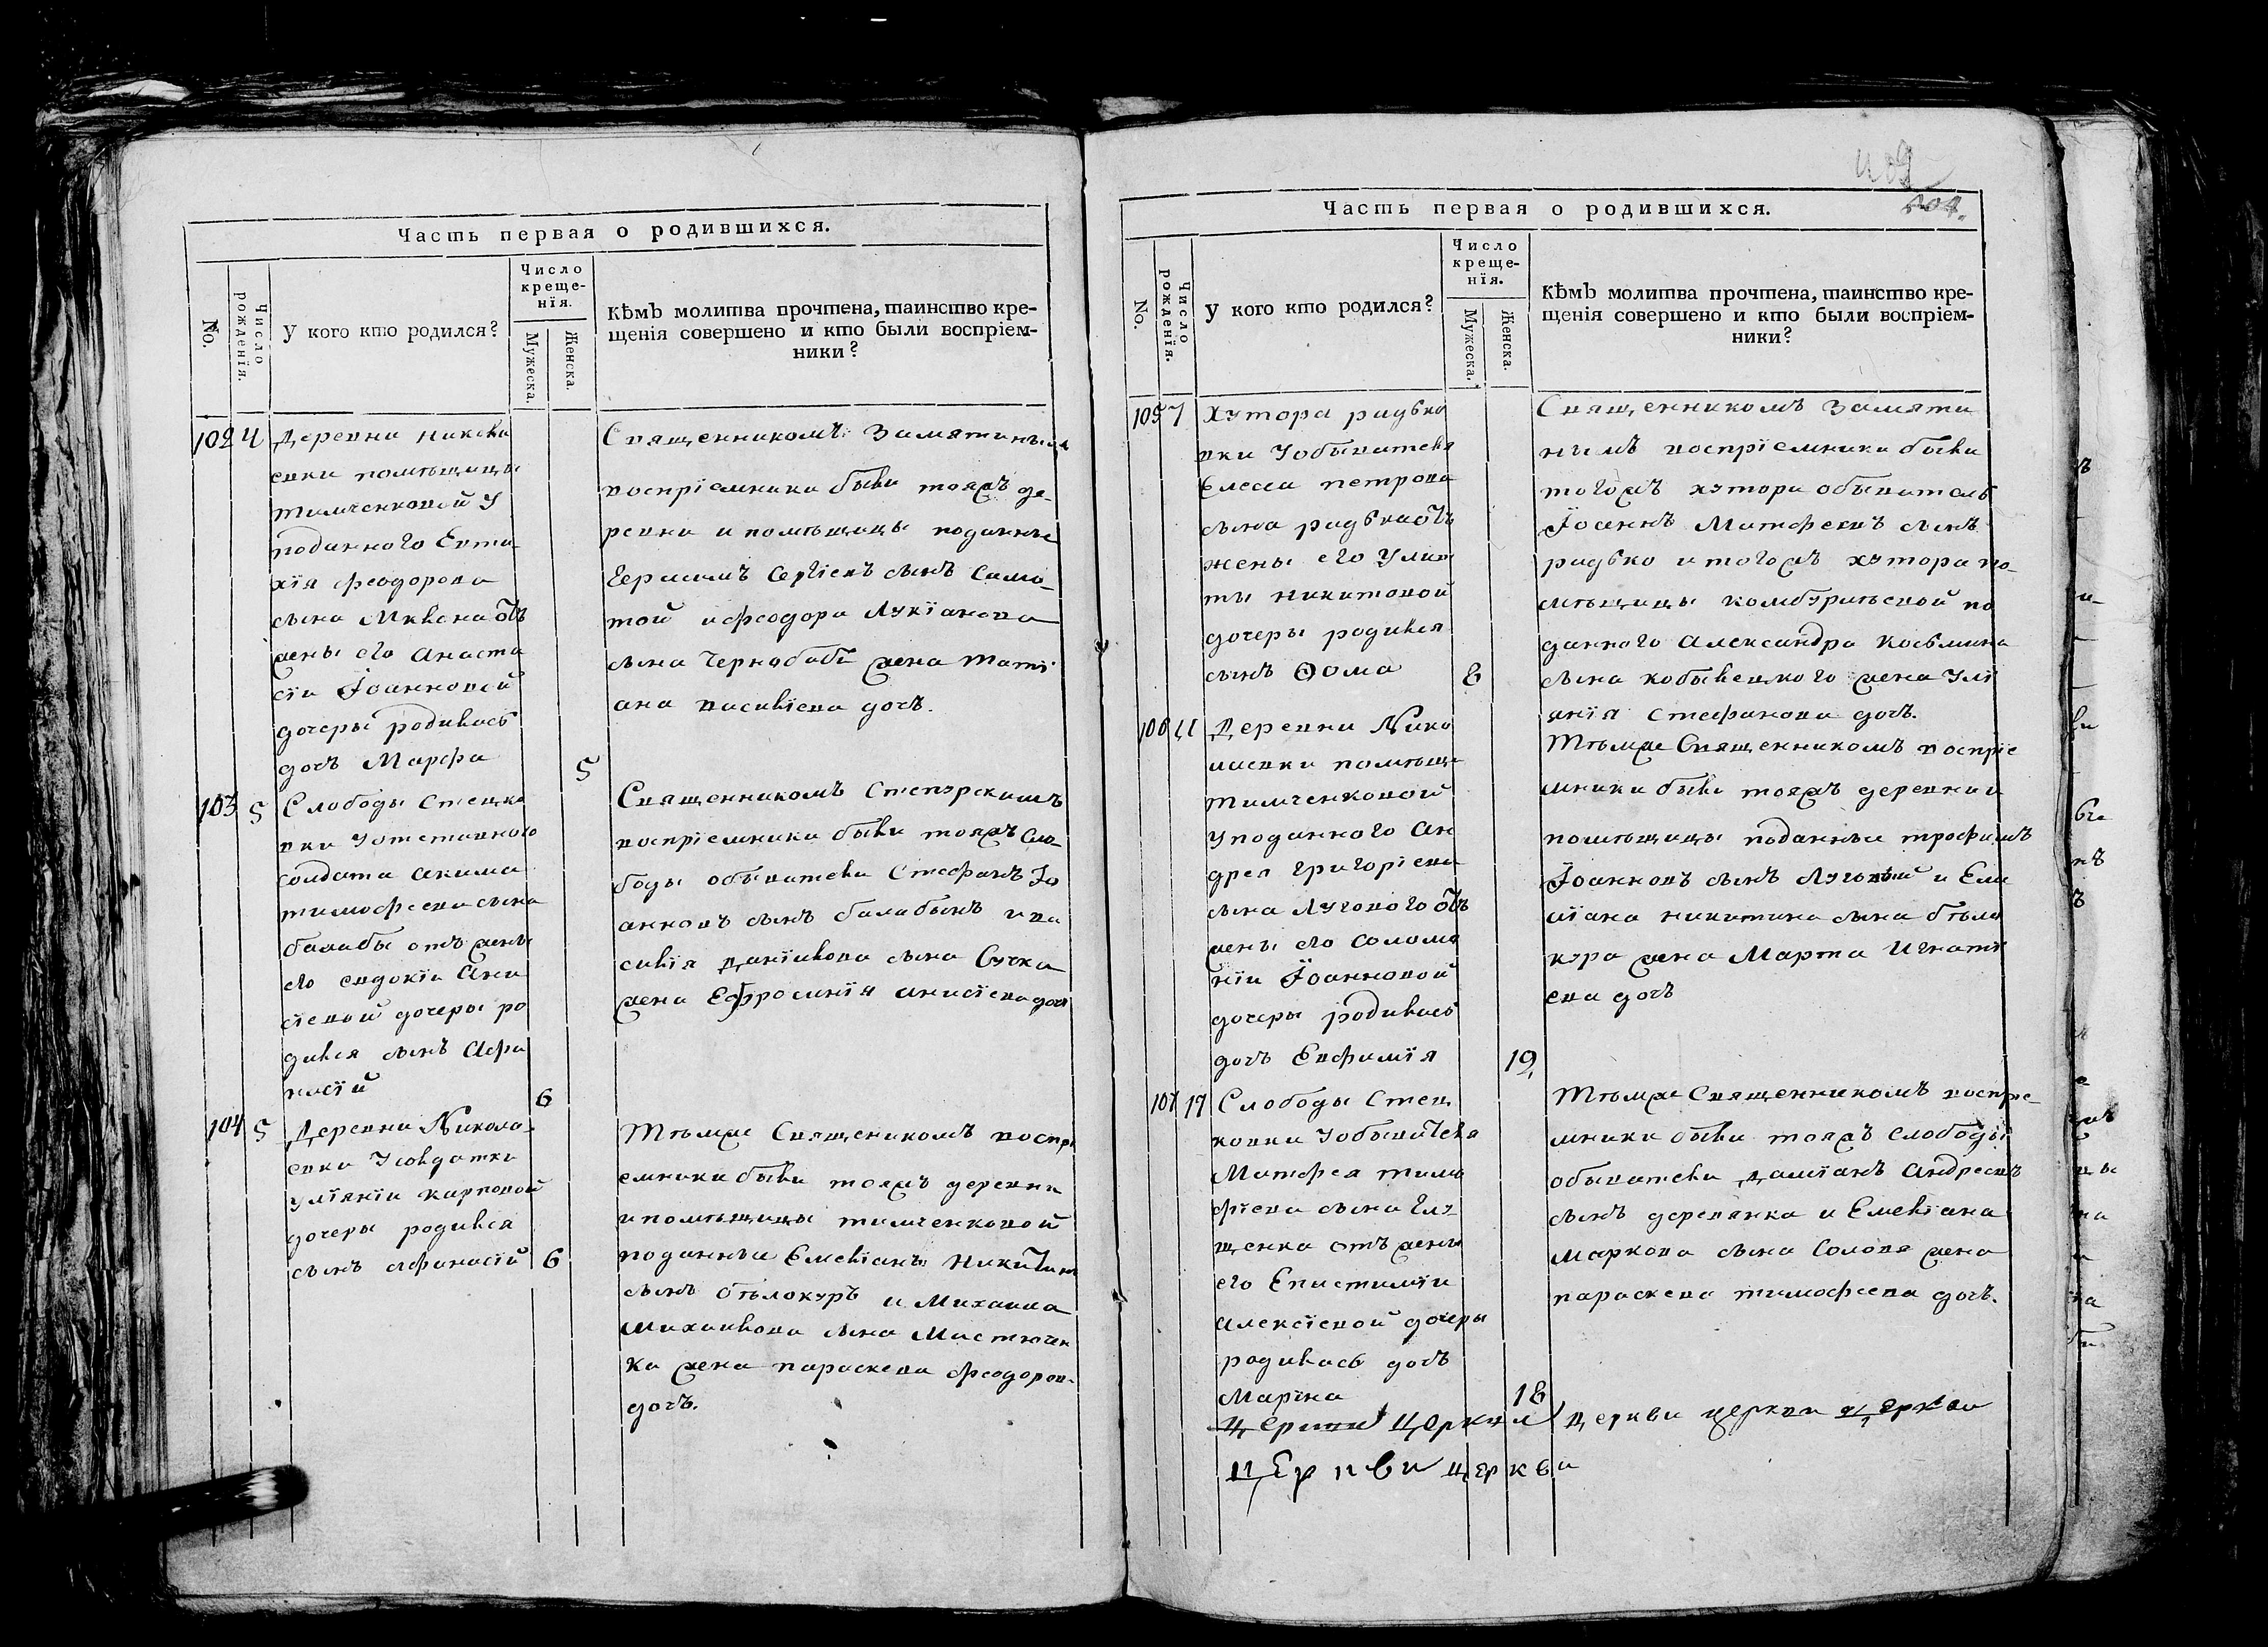 Часть первая о родившихся.
No.
Число рожденїя.
У кого кто родился?
Число
креще-
нїя.
Мужеска.
Женска.
Кѣмъ молитва прочтена, таинство кре-
щенїя совершено и кто были воспрїем-
ники?
102 4 Деревни
евки помѣщицы
тимченковой у
поданного Евти
хїя феодорова
сына отъ
жены его анаста
сїи Іоанновой
дочеры родилась
дочъ Марфа
5
Священникомъ Замятинымъ
воспрїемники были тояжъ де-
ревни и помѣщицы поданные
Герасимъ Сергїевъ сынъ Сама-
той и феодора Лукїанова
сына Чернобаба жена татї
ана василїева дочъ.
103 5 Слободы Стецко
вки у отставного
солдата акима
тимофеева сына
балабы отъ жены
его евдокїи
сїевой дочеры ро
дился сынъ Афа
насїй
6
Священникомъ
воспрїемники были тояжъ сло-
боды обыватели Стефанъ Іо
анновъ сынъ и ва
силїя данїилова сына Сучка
жена Ефросинїя анисїева доч
104 5 Деревни Никола-
евки у солдатки
улїянїи карповой
дочеры родился
сынъ афанасїй
6
Тѣмже Священикомъ воспрї
емники были тояжъ деревни
и помѣщицы тимченковой
поданные Емелїанъ Никитин
сынъ бѣлокуръ и Михаила
михаилова сына
ка жена параскева феодоров-
дочъ.
409
404.
Часть первая о родившихся.
No.
Число рожденїя.
У кого кто родился?
Число
креще-
нїя.
Мужеска.
Женска.
Кѣмъ молитва прочтена, таинство кре-
щенїя совершено и кто были воспрїем-
ники?
105 7 Хутора радько
вки у обывателя
Елесеи петрова
сына радька отъ
жены его Улия
ты никитовой
дочеры родился
сынъ Ѳома
8
Священникомъ Замяти
нымъ воспрїемники были
тогожъ хутора обыватель
Іоаннъ Матфеевъ сынъ
радько и тогожъ хутора по-
мѣщицы по
данного александра косьмина
сына жена улї
янїя стефанова дочъ.
106 Деревни Нико
лаевки помѣщи
Тимченковой
у поданного Ан
дрея григорїева
сына Лугового отъ
жены его соломо
нїи Іоанновой
дочеры родилась
дочъ Евфимїя
19
Тѣмже Священникомъ воспрїе
мники были тояжъ деревни и
помѣщицы поданные трофимъ
Іоанновъ сынъ Луговый и Еме
лїана никитина сына бѣло
кура жена Марта Игнатї
ева дочъ
107 17 Слободы Стец
ковки у обывателя
Матфея тимо
фїева сына
щенка отъ жены
его Епистимїи
алексїевой дочеры
родилась дочъ
Марїна
18
Тѣмже Священникомъ воспрїе-
мники были тояжъ слободы
обыватели дамїанъ андреевъ
сынъ деревянка и Емелїана
маркова сына Соловя жена
параскева тимофеева дочъ.
церкви церкви церкви церкви церкви
церкви церкви